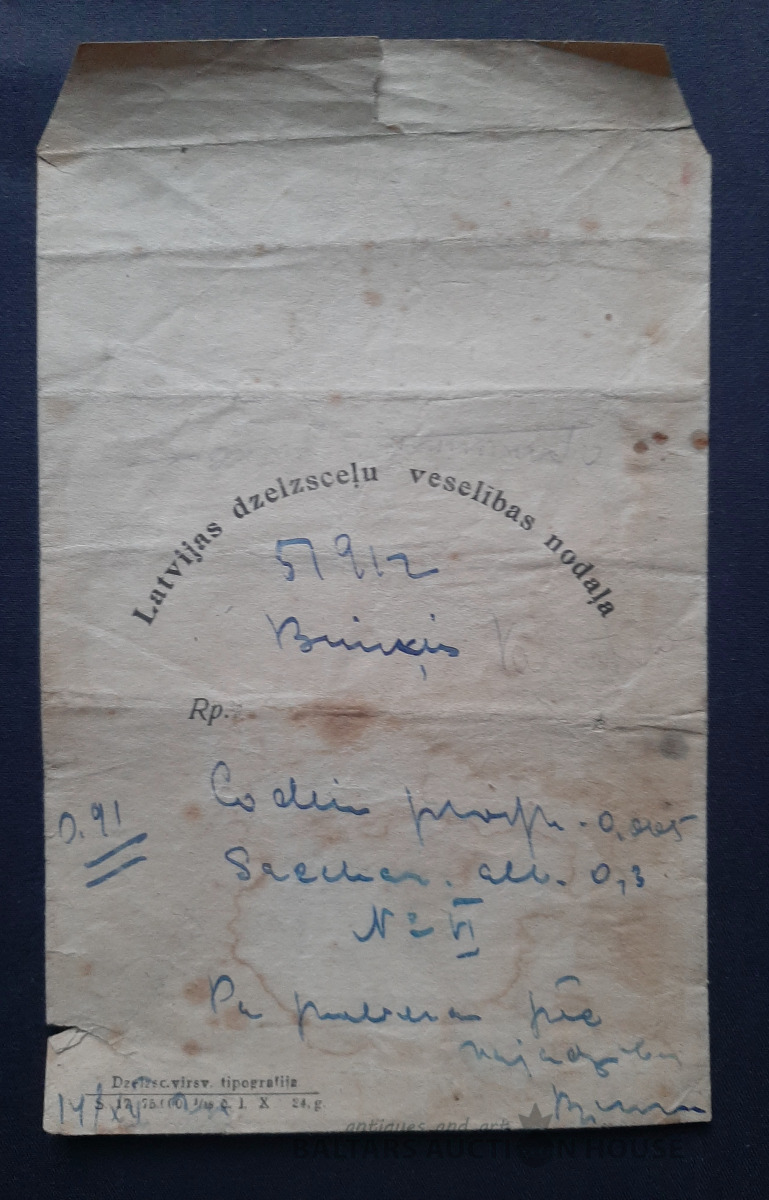 Latvijas dzelzsceļu veselības nodaļa
51912
Rp.
0.91
Codein phosph. 0,015
Sacchar. alb. 0,3
№ VI
Pa pulveram pēc
vajadzības
Dzelzsc.virsv. tipografija
X 24. g.
antiques and art
BALTARS AUCTION HOUSE